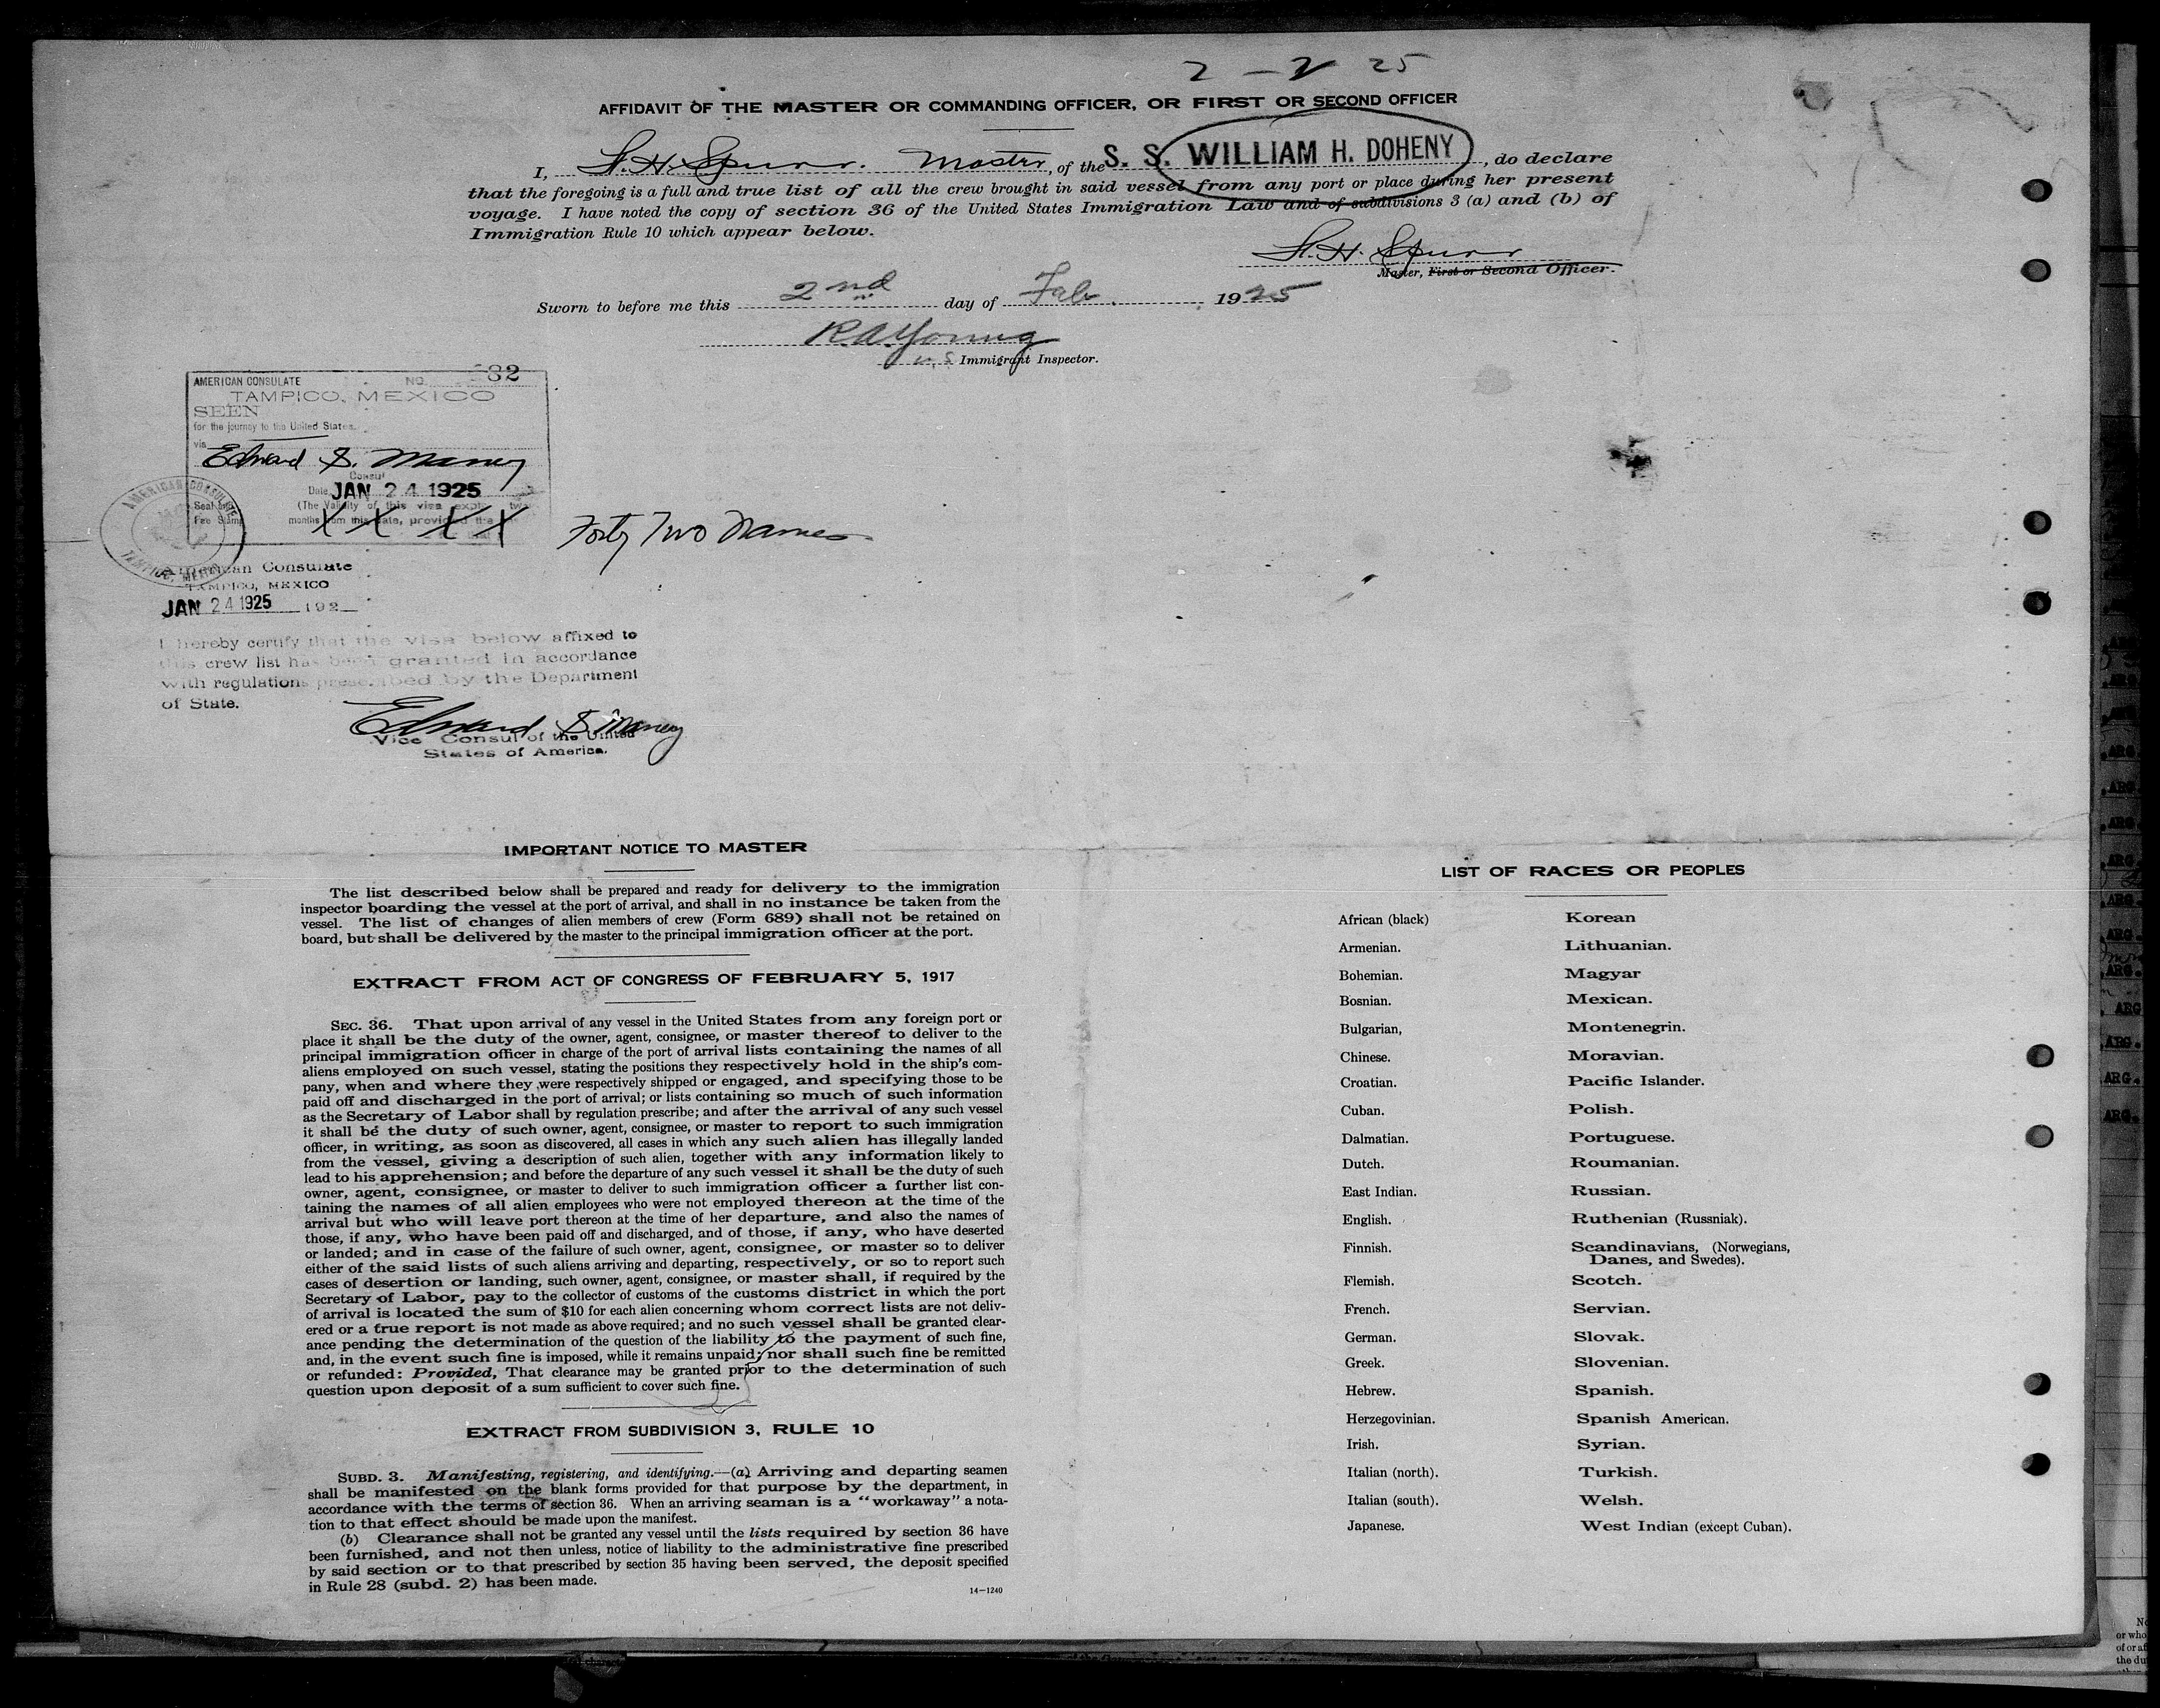 2 - 2 25
AFFIDAVIT OF THE MASTER OR COMMANDING OFFICER, OR FIRST OR SECOND OFFICER
I, H. Spurr. Master, of the S. S. WILLIAM H. DOHENY, do declare
that the foregoing is a full and true list of all the crew brought in said vessel from any port or place during her present
voyage. I have noted the copy of section 36 of the United States Immigration Law and of subdivisions 3 (a) and (b) of
Immigration Rule 10 which appear below.
H. Spurr
Master, First or Second Officer.
Sworn to before me this 2nd day of Feb. 1925
R.A. Young
U.S. Immigrant Inspector.
AMERICAN CONSULATE NO. 32
TAMPICO, MEXICO
SEEN
for the journey to the United States.
via
Edward S. Maney
Consul
Date JAN 24 1925
(The Validity of this visa two
Seal and
Fee Stamp
months from this date, provided the
X X X X
AMERICAN CONSULATE
TAMPICO, MEXICO
Forty Two Names
American Consulate
TAMPICO, MEXICO
JAN 24 1925 192
I hereby certify that the visa below affixed to
this crew list has been granted in accordance
with regulations prescribed by the Department
of State.
Edward S Maney
Vice Consul of the United
States of America.
IMPORTANT NOTICE TO MASTER
The list described below shall be prepared and ready for delivery to the immigration
inspector boarding the vessel at the port of arrival, and shall in no instance be taken from the
vessel. The list of changes of alien members of crew (Form 689) shall not be retained on
board, but shall be delivered by the master to the principal immigration officer at the port.
EXTRACT FROM ACT OF CONGRESS OF FEBRUARY 5, 1917
SEC. 36. That upon arrival of any vessel in the United States from any foreign port or
place it shall be the duty of the owner, agent, consignee, or master thereof to deliver to the
principal immigration officer in charge of the port of arrival lists containing the names of all
aliens employed on such vessel, stating the positions they respectively hold in the ship's com-
pany, when and where they were respectively shipped or engaged, and specifying those to be
paid off and discharged in the port of arrival; or lists containing so much of such information
as the Secretary of Labor shall by regulation prescribe; and after the arrival of any such vessel
it shall be the duty of such owner, agent, consignee, or master to report to such immigration
officer, in writing, as soon as discovered, all cases in which any such alien has illegally landed
from the vessel, giving a description of such alien, together with any information likely to
lead to his apprehension; and before the departure of any such vessel it shall be the duty of such
owner, agent, consignee, or master to deliver to such immigration officer a further list con-
taining the names of all alien employees who were not employed thereon at the time of the
arrival but who will leave port thereon at the time of her departure, and also the names of
those, if any, who have been paid off and discharged, and of those, if any, who have deserted
or landed; and in case of the failure of such owner, agent, consignee, or master so to deliver
either of the said lists of such aliens arriving and departing, respectively, or so to report such
cases of desertion or landing, such owner, agent, consignee, or master shall, if required by the
Secretary of Labor, pay to the collector of customs of the customs district in which the port
of arrival is located the sum of $10 for each alien concerning whom correct lists are not deliv-
ered or a true report is not made as above required; and no such vessel shall be granted clear-
ance pending the determination of the question of the liability to the payment of such fine,
and, in the event such fine is imposed, while it remains unpaid; nor shall such fine be remitted
or refunded: Provided, That clearance may be granted prior to the determination of such
question upon deposit of a sum sufficient to cover such fine.
EXTRACT FROM SUBDIVISION 3, RULE 10
SUBD. 3. Manifesting, registering, and identifying.—(a) Arriving and departing seamen
shall be manifested on the blank forms provided for that purpose by the department, in
accordance with the terms of section 36. When an arriving seaman is a "workaway" a nota-
tion to that effect should be made upon the manifest.
(b) Clearance shall not be granted any vessel until the lists required by section 36 have
been furnished, and not then unless, notice of liability to the administrative fine prescribed
by said section or to that prescribed by section 35 having been served, the deposit specified
in Rule 28 (subd. 2) has been made.
14—1240
LIST OF RACES OR PEOPLES
African (black)
Armenian.
Bohemian.
Bosnian.
Bulgarian,
Chinese.
Croatian.
Cuban.
Dalmatian.
Dutch.
East Indian.
English.
Finnish.
Flemish.
French.
German.
Greek.
Hebrew.
Herzegovinian.
Irish.
Italian (north).
Italian (south).
Japanese.
Korean
Lithuanian.
Magyar
Mexican.
Montenegrin.
Moravian.
Pacific Islander.
Polish.
Portuguese.
Roumanian.
Russian.
Ruthenian (Russniak).
Scandinavians, (Norwegians,
Danes, and Swedes).
Scotch.
Servian.
Slovak.
Slovenian.
Spanish.
Spanish American.
Syrian.
Turkish.
Welsh.
West Indian (except Cuban).